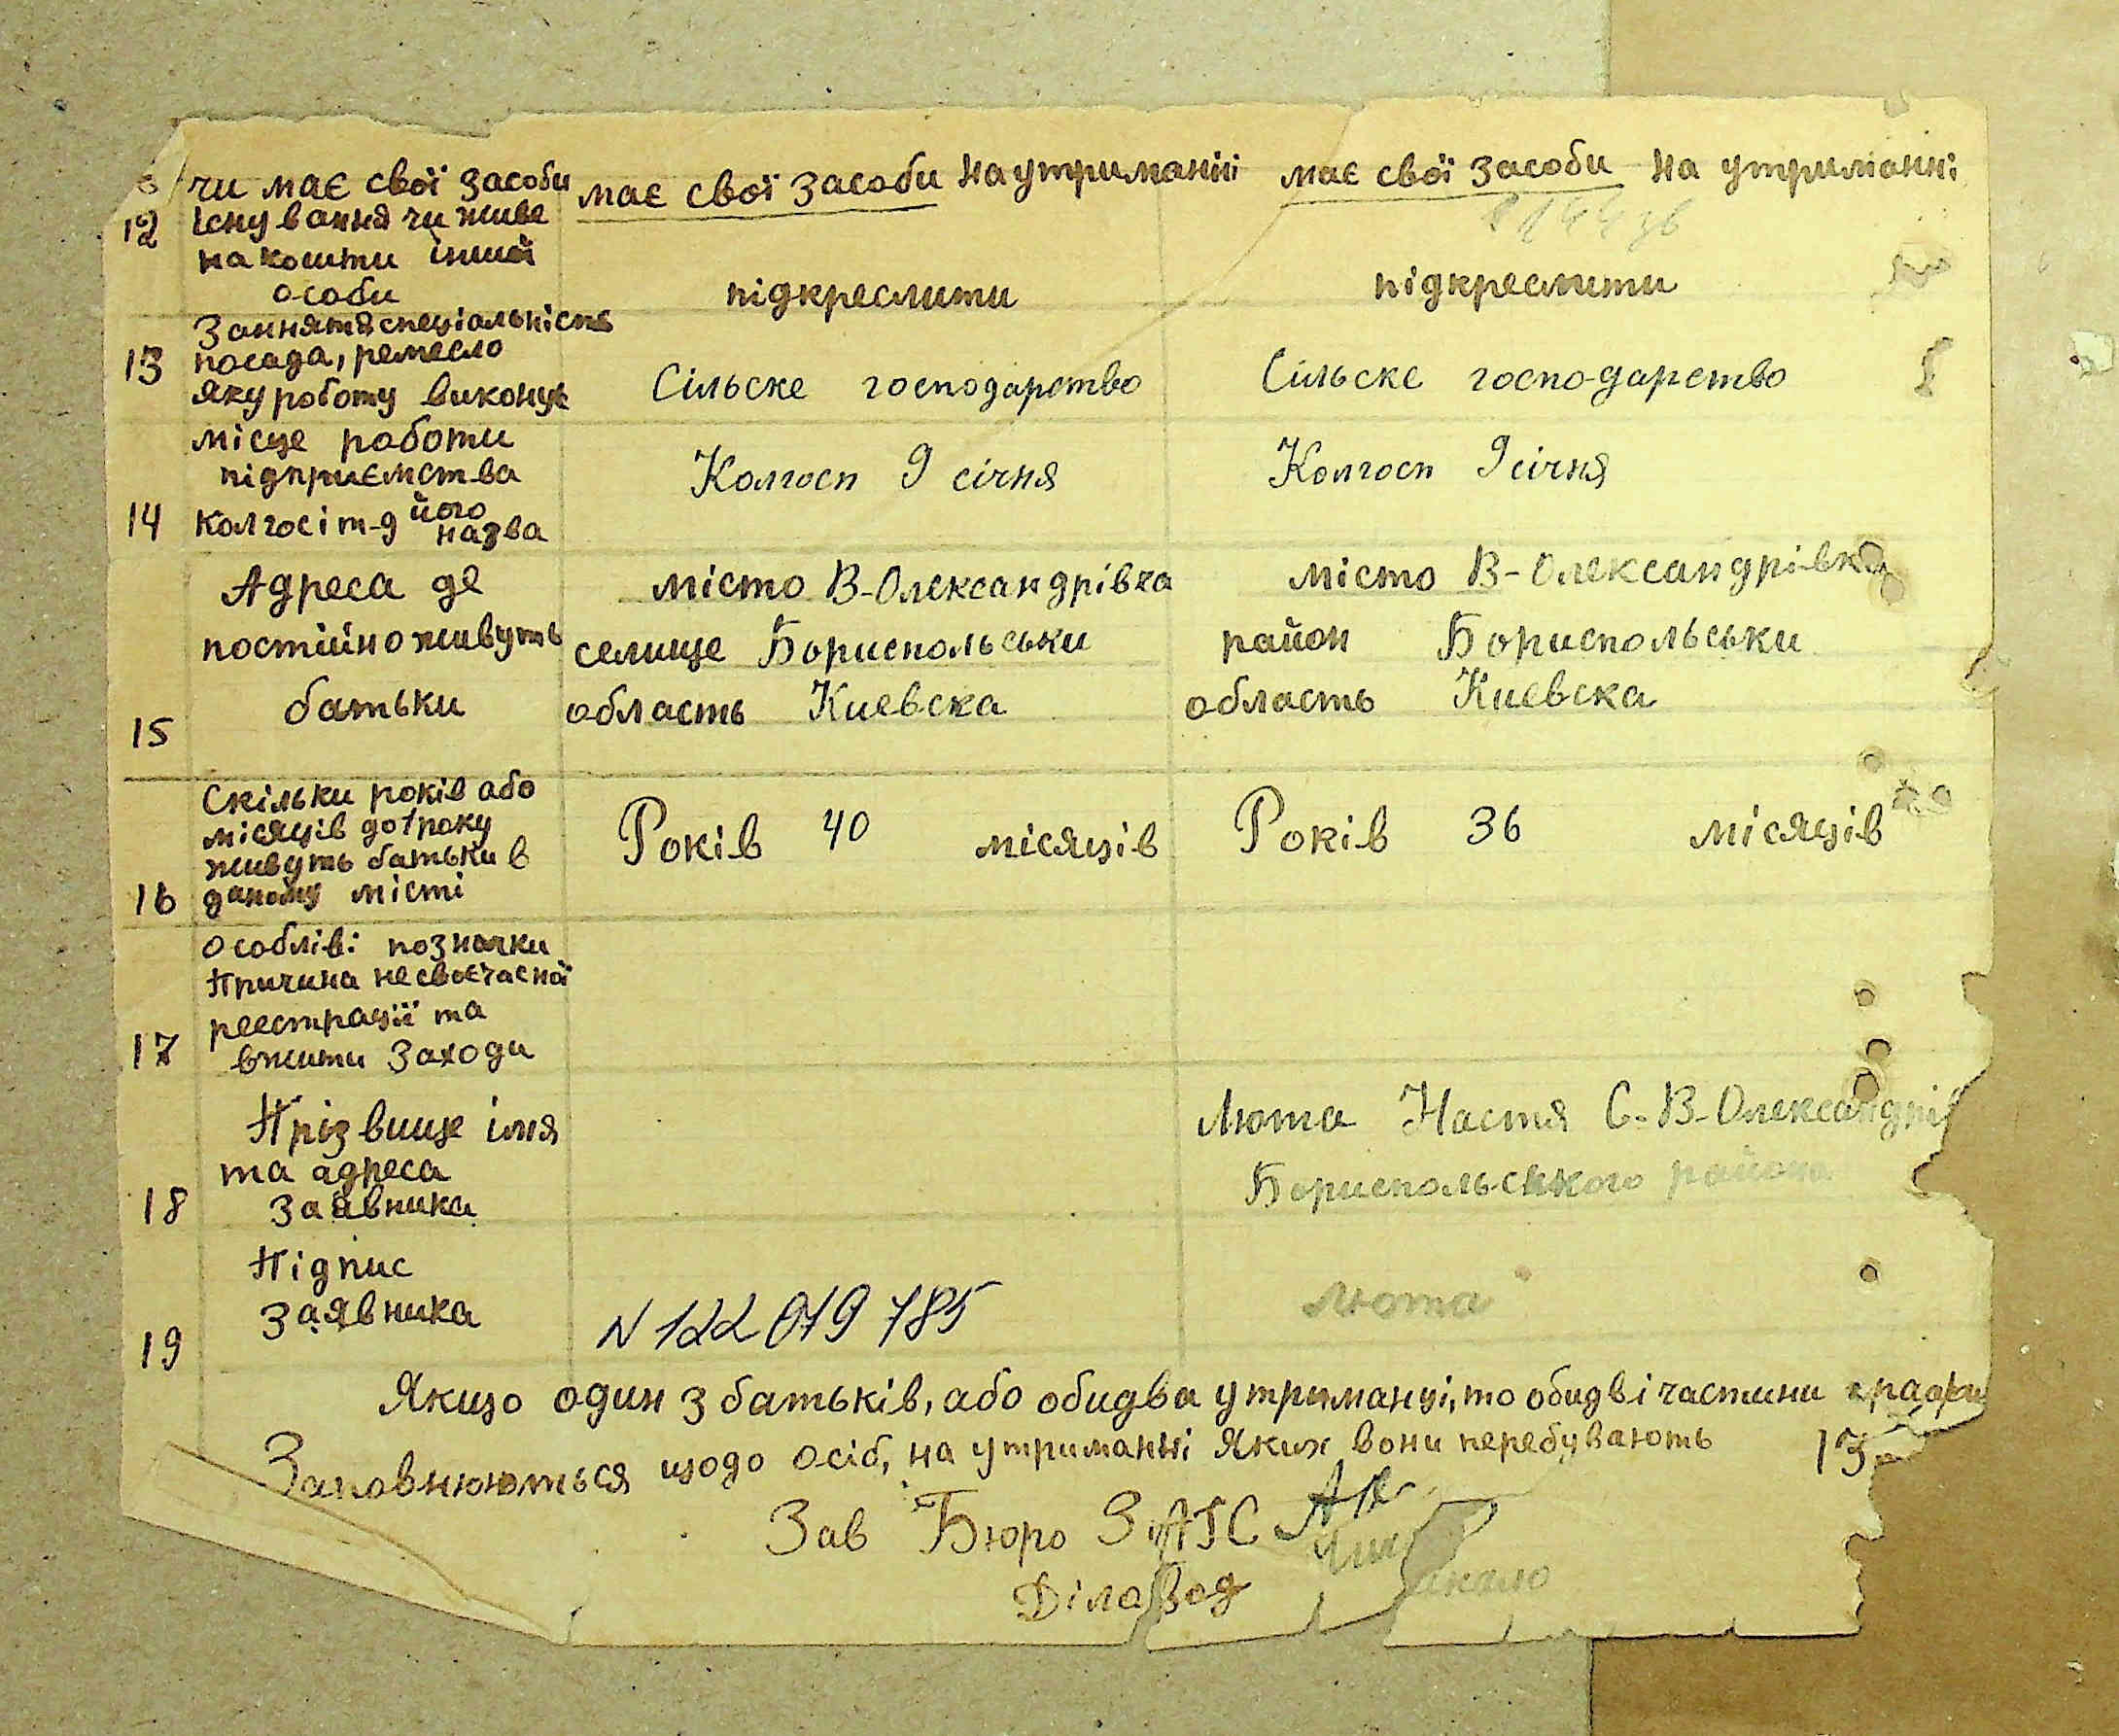 чи має свої засоби має свої засоби на утриманні має свої засоби на утриманні
12 існування чи живе
на кошти іншої
особи підкреслити підкреслити
Занняття спеціальність
13 посада, ремесло Сільське господарство Сільське господарство
яку роботу виконує
місце работи
підприємства Колгосп 9 січня Колгосп 9 січня
14 Колгос і т-д його
назва
Адреса де місто В-Олександрівка місто В-Олександрівка
постійно живуть селище Бориспольськи район Бориспольськи
батьки область Киевска область Киевска
15
Скільки років або
місяців до 1 року Років 40 місяців Років 36 місяців
живуть батьки в
16 даному місті
особліві позначки
Причина несвоєчасної
реестрації та
17 вжити заходи
Прізвище імя Люта Настя С. В-Олександрів
та адреса Бориспольського района
18 заявника
Підпис
заявника N 122 019 785 Люта
19
Якщо один з батьків, або обидва утриманці, то обидві частини графи
Заповнюються щодо осіб, на утриманні яких вони перебувають 13
Зав Бюро ЗАГС
Діловод